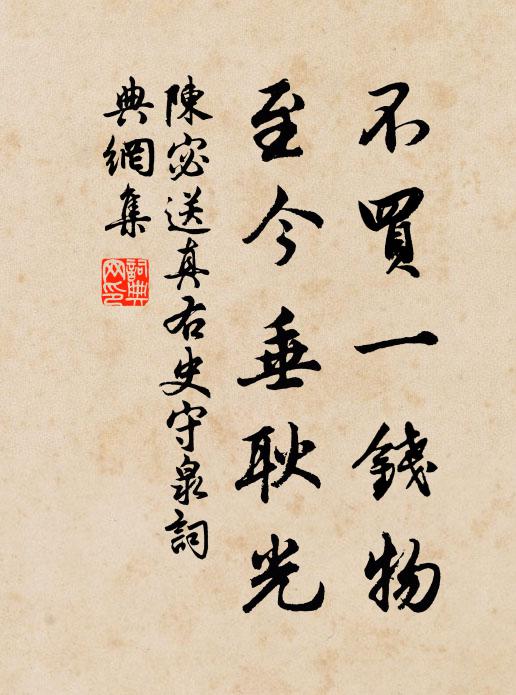 不買一錢物
至今垂耿光
陳宓送真右史守泉詞
典網集
詞典
網印